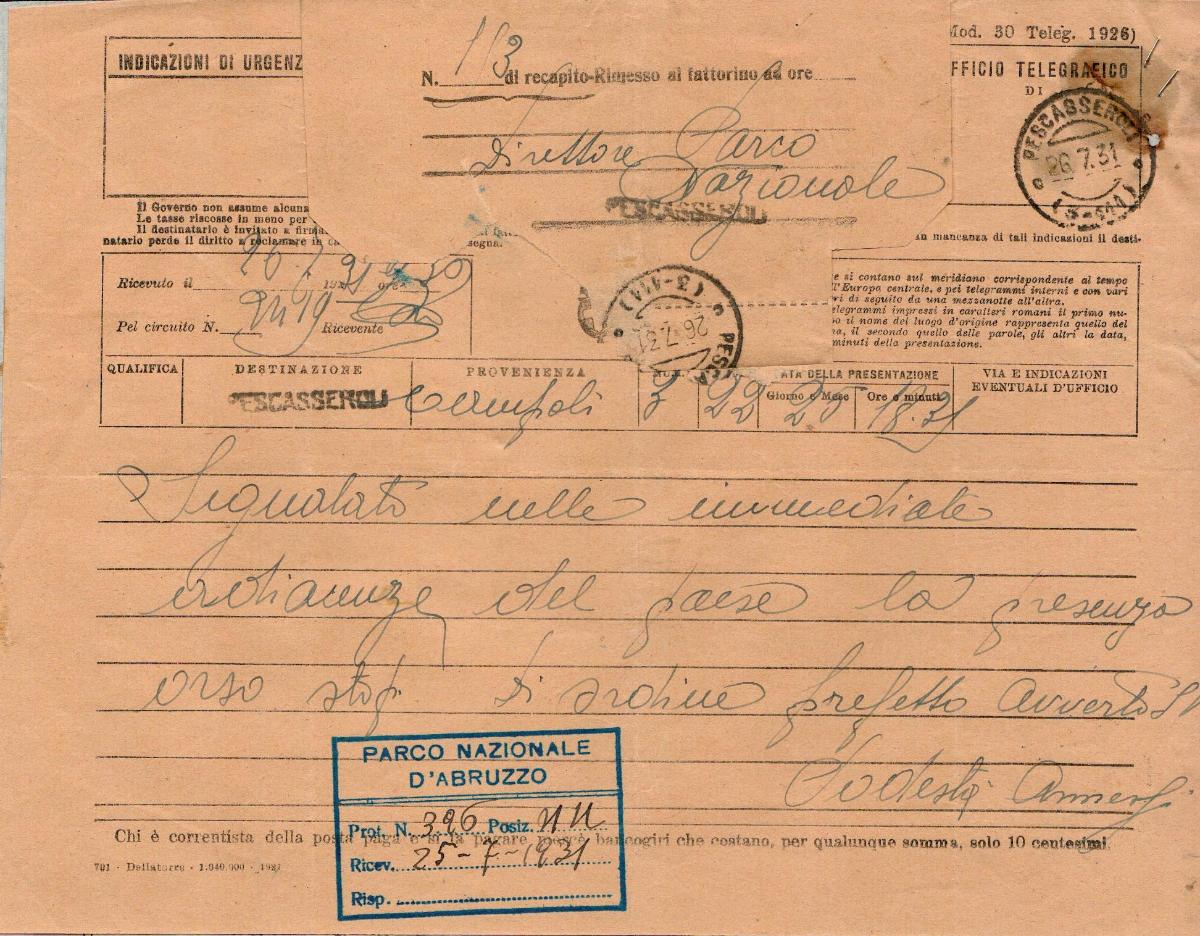 Mod. 30 Teleg. 1926)
INDICAZIONI DI URGENZ
N. 113 di recapito-Rimesso al fattorino ad ore
FFICIO TELEGRAFICO
DI
PESCASSEROLI
26.7.31
Direttore Parco
Nazionale
PESCASSEROLI
Il Governo non assume alcuna
Le tasse riscosse in meno per
Il destinatario è invitato a firma
natario perde il diritto a reclamare in ca
segna.
in mancanza di tali indicazioni il desti-
Ricevuto il 26.7 1931 ore
Pel circuito N. Ricevente
e si contano sul meridiano corrispondente al tempo
l'Europa centrale, e pei telegrammi interni e con vari
ri di seguito da una mezzanotte all'altra.
elegrammi impressi in caratteri romani il primo nu-
o il nome del luogo d'origine rappresenta quello del
a, il secondo quello delle parole, gli altri la data,
minuti della presentazione.
26.7.31
PESCA
QUALIFICA DESTINAZIONE PROVENIENZA NUM. ATA DELLA PRESENTAZIONE VIA E INDICAZIONI
Giorno e Mese Ore e minuti EVENTUALI D'UFFICIO
PESCASSEROLI Campoli 3 22 25 18.35
Segnalato nelle immediate
adiacenze del paese la presenza
orso stop Di ordine prefetto avverto SV
Podestà
PARCO NAZIONALE
D'ABRUZZO
Prot. N. 396 Posiz.
Chi è correntista della posta paga e si fa pagare mercè bancogiri che costano, per qualunque somma, solo 10 centesimi.
Ricev. 25-7-1931
701 - Dellatorre - 1.040.000 - 1927
Risp.